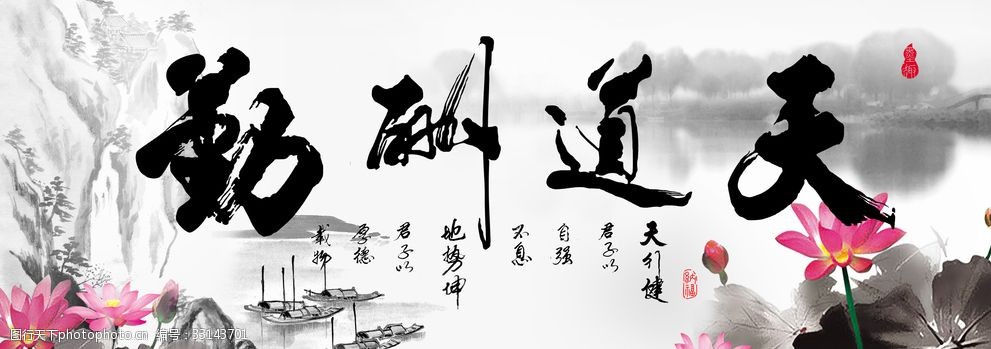 天道酬勤
天行健
君子以
自强
不息
地势坤
君子以
厚德
载物
纳福
图行天下 photophoto.cn 编号:33143701